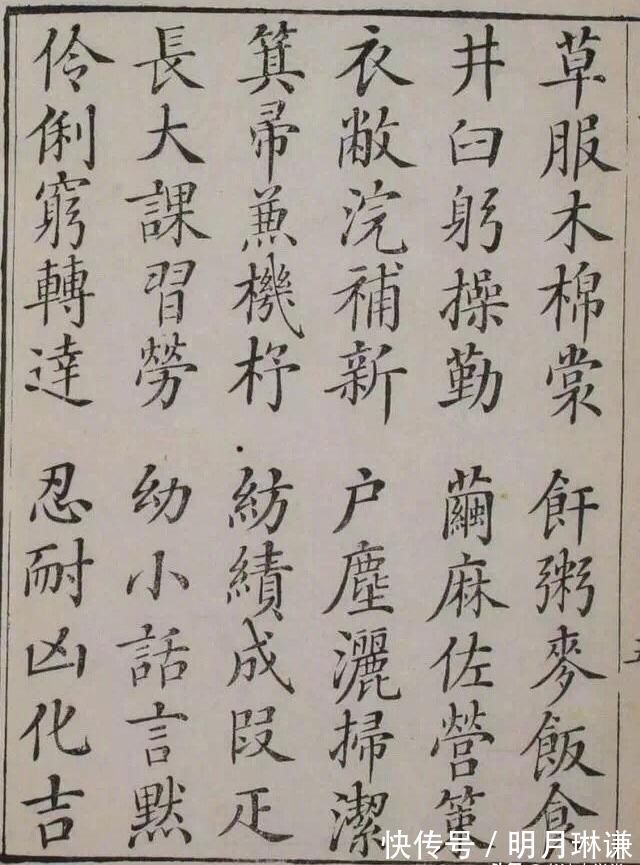 草服木棉裳 飦粥麥飯食
井臼躬操勤 繭麻佐營
衣敝浣補新 户塵灑掃潔
箕帚兼機杼 紡績成段疋
長大課習勞 幼小話言默
伶俐窮轉達 忍耐凶化吉
快传号 / 明月琳谦